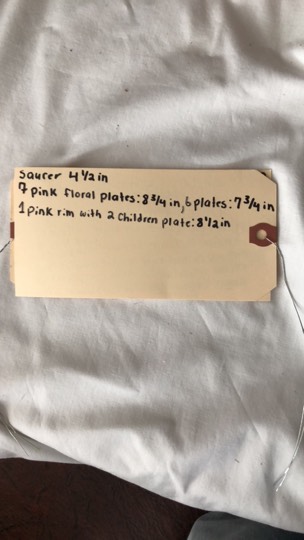 Saucer 4 1/2 in
7 pink floral plates: 8 3/4 in, 6 plates: 7 3/4 in
1 pink rim with 2 children plate: 8 1/2 in